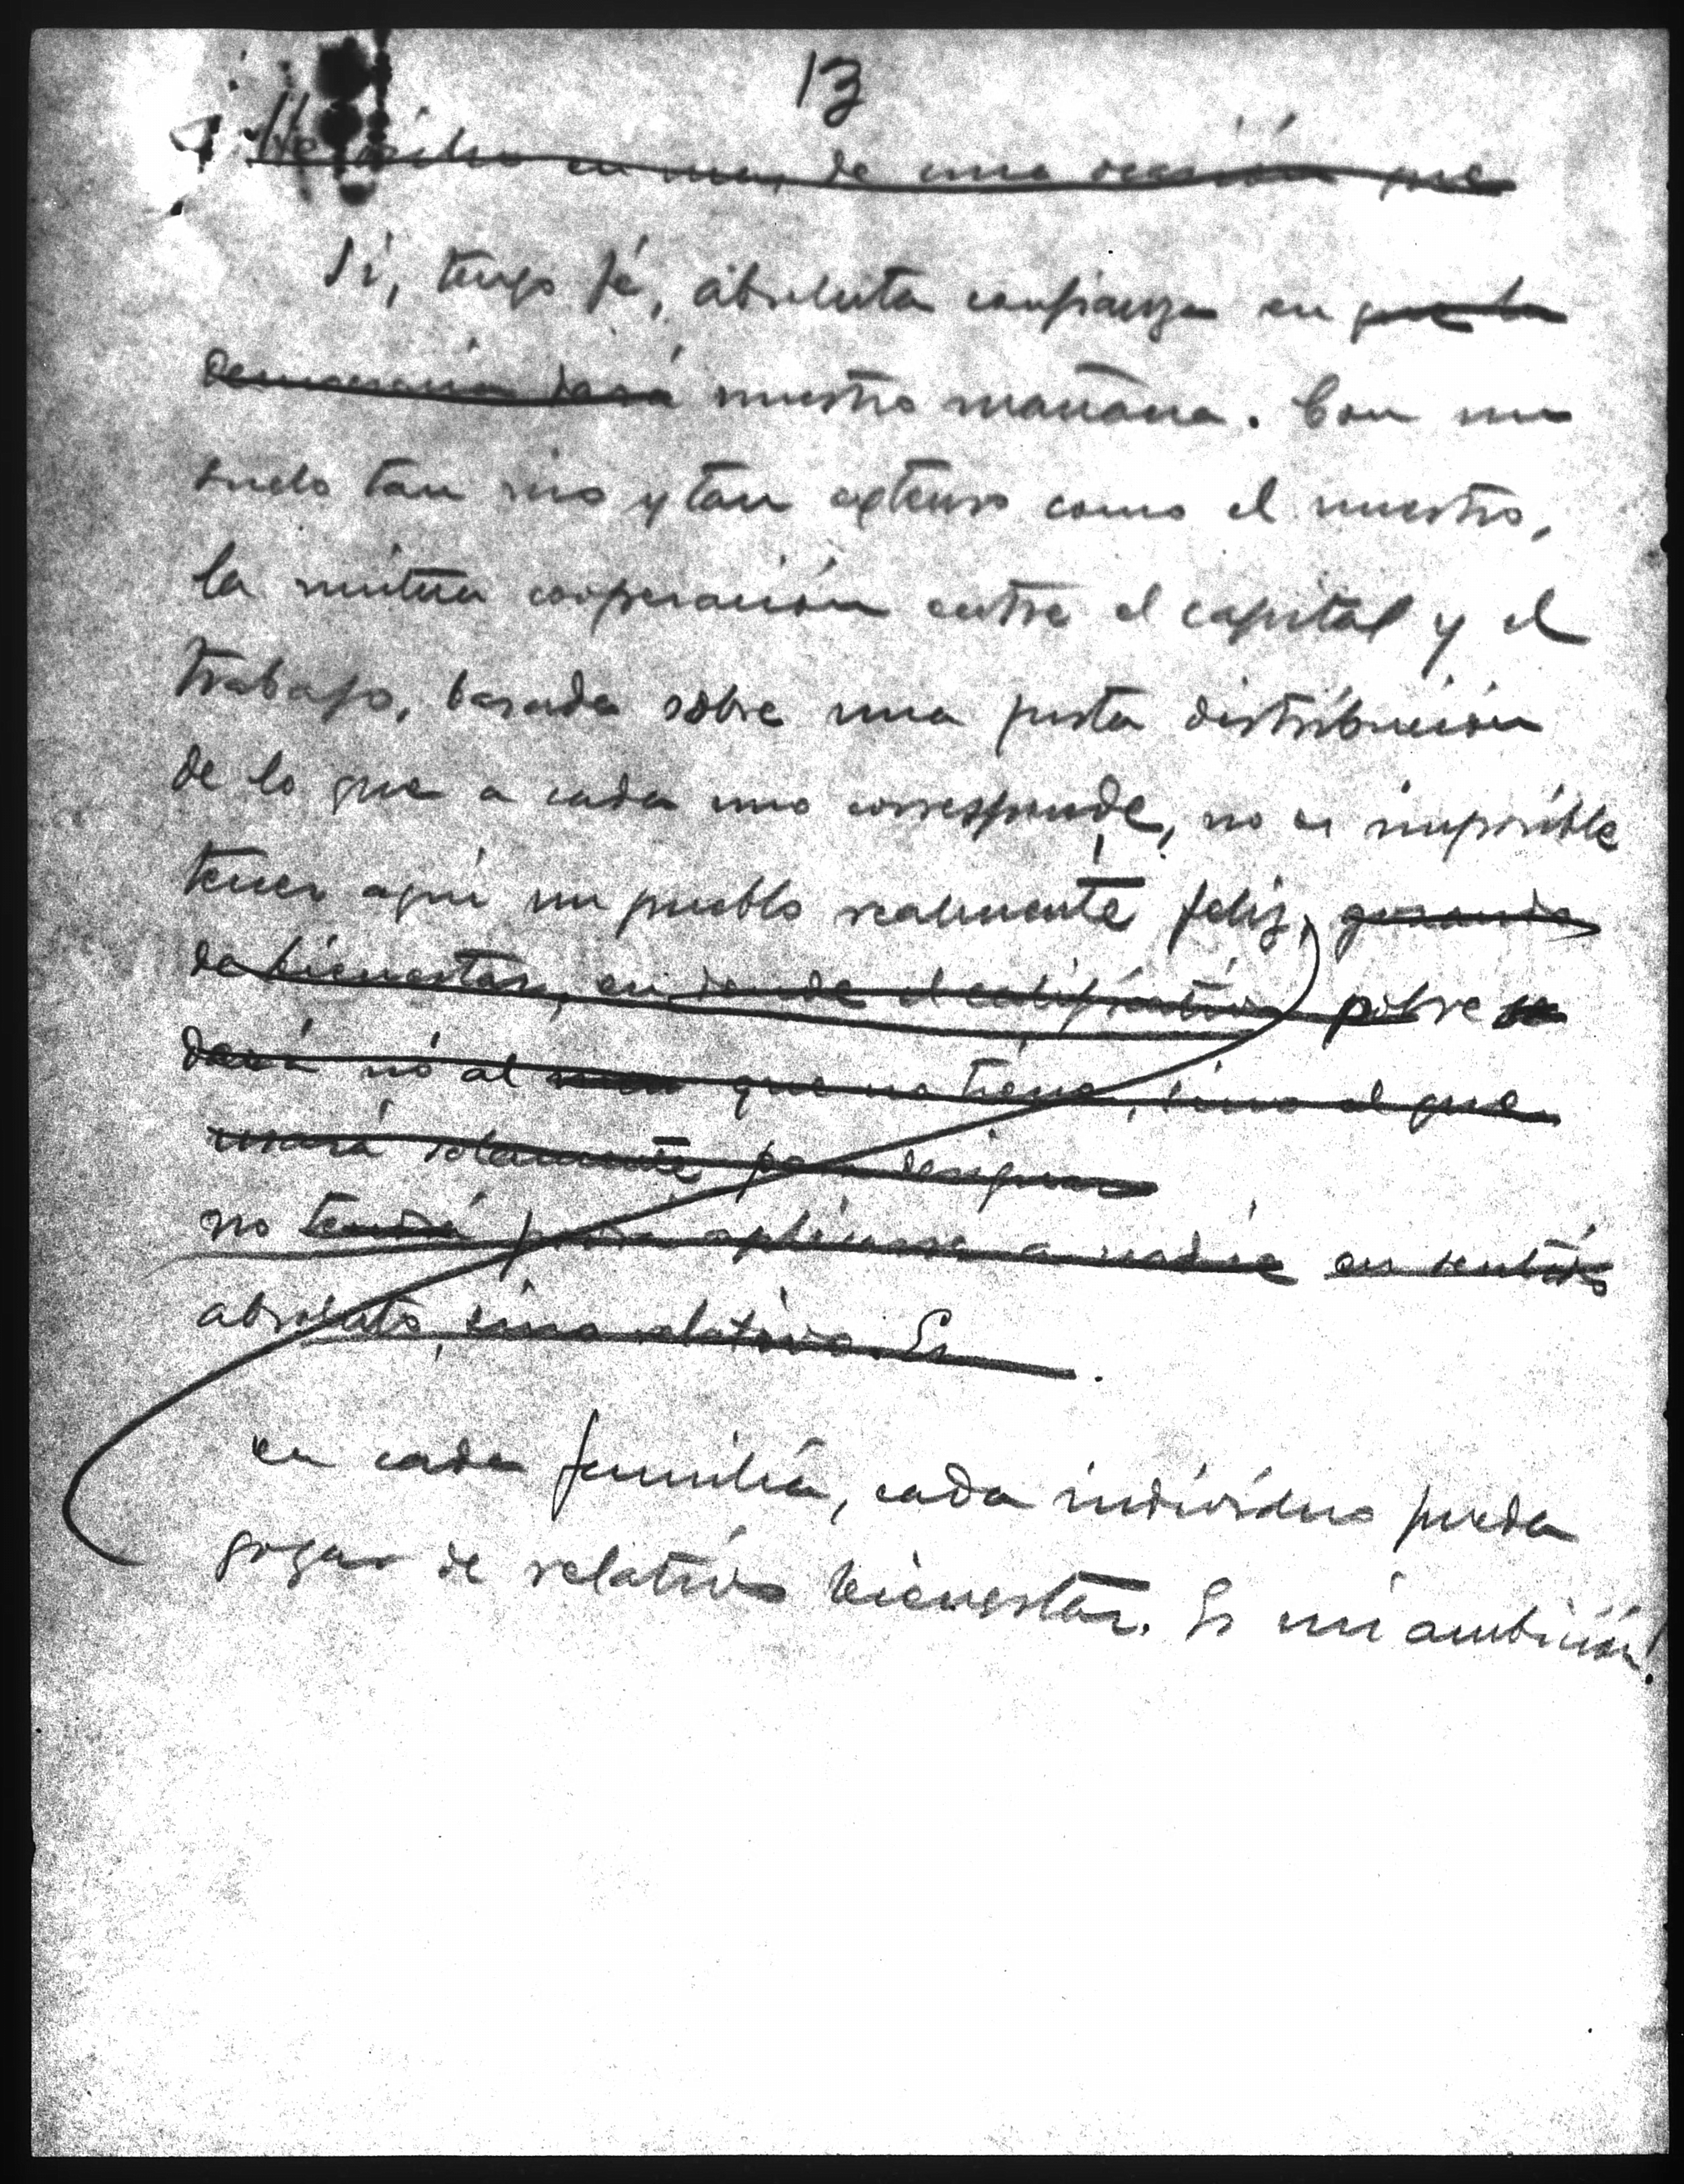 13
He dicho en mas de una ocasión que
Sí, tengo fé, absoluta confianza en que la
democracia hará nuestro mañana. Con un
suelo tan rico y tan extenso como el nuestro,
la mútua cooperación entre el capital y el
trabajo, basada sobre una justa distribución
de lo que a cada uno corresponde, no es imposible
tener aquí un pueblo realmente feliz,
de bienestar, en donde el calificativo pobre se
dará nó al que no tiene, sino al que
usará solamente para designar
no tendrá podrá aplicarse a nadie en sentido
absoluto, sino relativo. Es
en cada familia, cada individuo pueda
gozar de relativo bienestar. Es mi ambición!